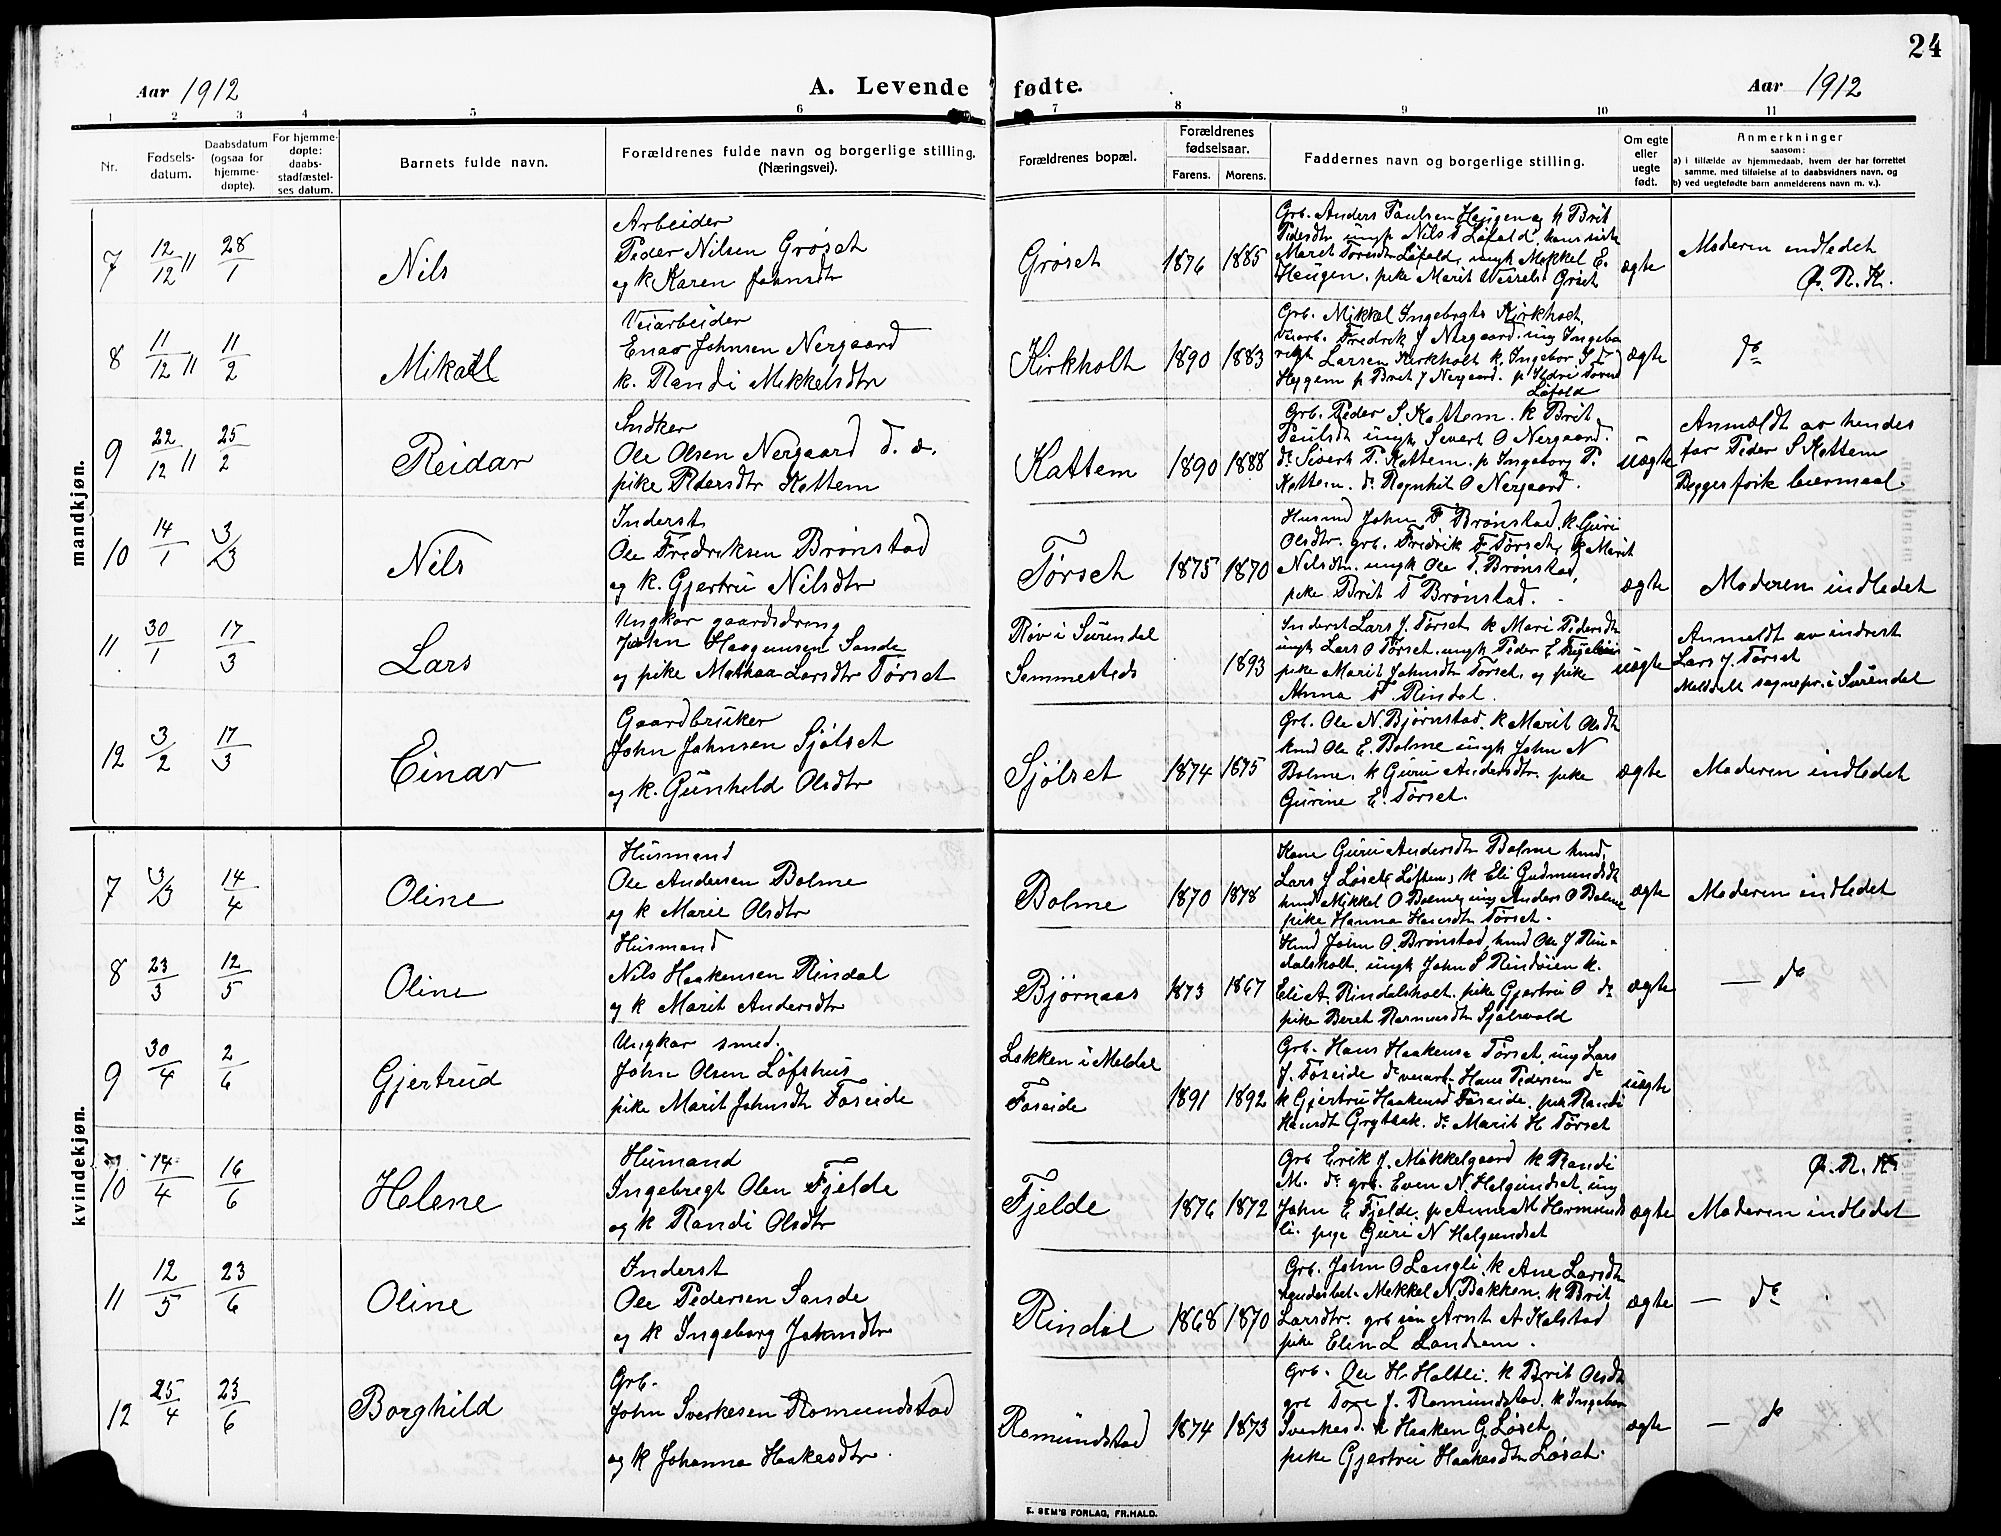 24
Aar 1912
A. Levende fødte.
Aar 1912
1 2 3 4 5 6 7 8 9 10 11
Nr.
Fødsels-
datum.
Daabsdatum
(ogsaa for
hjemme-
døpte).
For hjemme-
døpte:
daabs-
stadfæstel-
ses datum.
Barnets fulde navn.
Forældrenes fulde navn og borgerlige stilling.
(Næringsvei).
Forældrenes bopæl.
Forældrenes
fødselsaar.
Farens. Morens.
Faddernes navn og borgerlige stilling.
Om egte
eller
uegte
født.
Anmerkninger
saasom:
a) i tilfælde av hjemmedaab, hvem der har forrettet
samme, med tilføielse af to daabsvidners navn, og
b) ved uegtefødte barn anmelderens navn m. v.).
mandkjøn.
7
12/12 11
28/1
Nils
Arbeider
Peder Nilsen Grøset
og k Karen Johnsdt
Grøset
1876 1885
Grb. Anders Paulsen Heggem og k Brit
Pedersdtr ungk Nils T Løfald, hans søster
Marit Toresdtr Løfald, ungk Mekkel E.
Haugen, pike Marit Grøset
ægte
Moderen indledet
Ø. R. K.
8
11/12 11
11/2
Mikael
Veiarbeider
Enar Johnsen Nergaard
k. Randi Mikkelsdtr
Kirkholt
1890 1883
Grb. Mikkel Ingebrgts Kirkholt,
veiarb. Fredrik J Nergaard. ung Ingeb
rigt Larsen Kirkholt k. Ingebor
Heggem p Brit J Nergaard. p Ildri Tores
Løfald
ægte
do
9
22/12 11
25/2
Reidar
Sndker
Ole Olsen Nergaard d. æ.
pike Pedersdtr Kattem
Kattem
1890 1888
Grb. Peder S. Kattem. k Brit
Paulsdt ungk Sivert O Nergaard.
do Sivert P. Kattem. p Ingeborg P.
Kattem. do Ragnhil O Nergaard.
uægte
Anmældt av hendes
far Peder S Kattem
Begges første leiermaal.
10
14/1
3/3
Nils
Inderst
Ole Fredriksen Brønstad
og k. Gjertru Nilsdtr
Tørset
1875 1870
Husmd John F Brønstad, k Guri
Olsdtr. grb. Fredrik F Tørset, k Marit
Nilsdtr. ungk Ole F. Brønstad,
pike Brit F Brønstad.
ægte
Moderen indledet
11
30/1
17/3
Lars
Ungkar gaardsdreng
John Haagensen Sande
og pike Mathea Larsdtr Tørset
Røv i Surendal
Sammesteds
1893
Inderst Lars J. Tørset k Mari Pedersdtr
ungk Lars O Tørset, ungk Peder E
pike Marit Johnsdt Tørset, og pike
Anna F. Rindal.
uægte
Anmeldt av inderst
Lars J. Tørset
Meldelt sognepr. i Surendal
12
3/2
17/3
Einar
Gaardbruker
John Johnsen Sjølset
og k. Gunhild Olsdtr
Sjølset
1874 1875
Grb. Ole N. Bjørnstad. k Marit Olsdt
husmd Ole E. Bolme ungk John N
Bolme. k Guru Andersdtr. pike
Gurine E. Tørset.
ægte
Moderen indledet
kvindekjøn.
7
3/3
14/4
Oline
Husmand
Ole Andersen Bolme
og k Marit Olsdtr
Bolme
1870 1878
Kone Guru Andersdtr Bolme husmd.
Lars J Løset (Løften) k Eli Gudmundsdt
husmd Mikkel O Bolme, ung Anders O Bolme
pike Hanna Hansdtr Tørset.
ægte
Moderen indledet
8
23/3
12/5
Oline
Husmand
Nils Haakensen Rindal
og k Marit Andersdtr
Bjørnaas
1873 1867
Husmd John O. Brønstad, husmd Ole J Rin-
dalsholt, ungk John S Rindøien k.
Eli A. Rindalsholt. pike Gjertru O do
pike Beret Rasmusdtr Sjølsvold
ægte
— do
9
30/4
2/6
Gjertrud
Ungkar smed.
John Olsen Løfshus
pike Marit Johnsdtr Foseide
Løkken i Meldal
Foseide
1891 1892
Grb. Hans Haakens Tørset, ung Lars
J. Foseide do veiarb. Hans Pedersen do
k Gjertru Haakensd Foseide, pike Randi
Hansdt Grytbak. do Marit H Tørset
uægte
10
14/4
16/6
Helene
Husmand
Ingebregt Olen Fjelde
og k Randi Olsdtr
Fjelde
1876 1872
Grb Erik J. Mikkelgaard k Randi
M. do grb. Even N Helgundset, ung
John E Fjelde, p Anne M Hermunds
li. pige Guri N Helgundset
ægte
Ø. R. K.
Moderen indledet
11
12/5
23/6
Oline
Inderst
Ole Pedersen Sande
og k Ingeborg Johnsdtr
Rindal
1868 1870
Grb. John O Langli. k Ane Larsdtr
handelsbet. Mekkel N. Bakken. k Brit
Larsdtr. grb søn Arnt A Kalstad
pike Elen L Landsem.
ægte
— do
12
25/4
23/6
Borghild
Grb.
John Sverkesen Romundstad
og k Johanna Haakesdtr.
Romundstad
1874 1873
Grb. Ole H. Holtli. k Brit Olsdt
grb Tore J. Romundstad. k Ingebor
Sverkesd. k Haaken G. Løset
pike Gjertru Haakesdtr Løset.
ægte
— do
E. SEM'S FORLAG, FR.HALD.